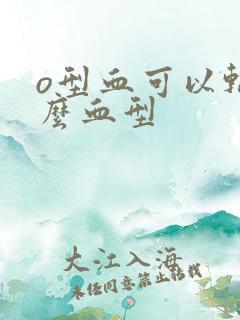 o型血可以
麽血型
大江入海
未经同意禁止转载